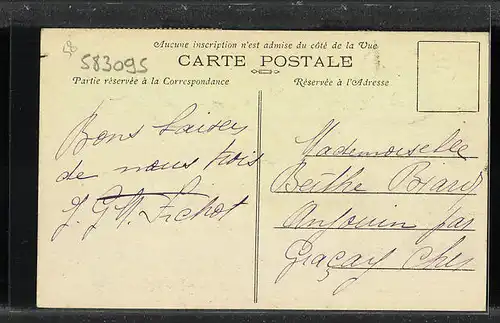 58
583095
Aucune inscription n'est admise du côté de la Vue
CARTE POSTALE
Partie réservée à la Correspondance
Réservée à l'Adresse
Bons baisers
de nous trois
J. G. M. Pichot
Mademoiselle
Berthe Biard
Anjouin par
Graçay Cher